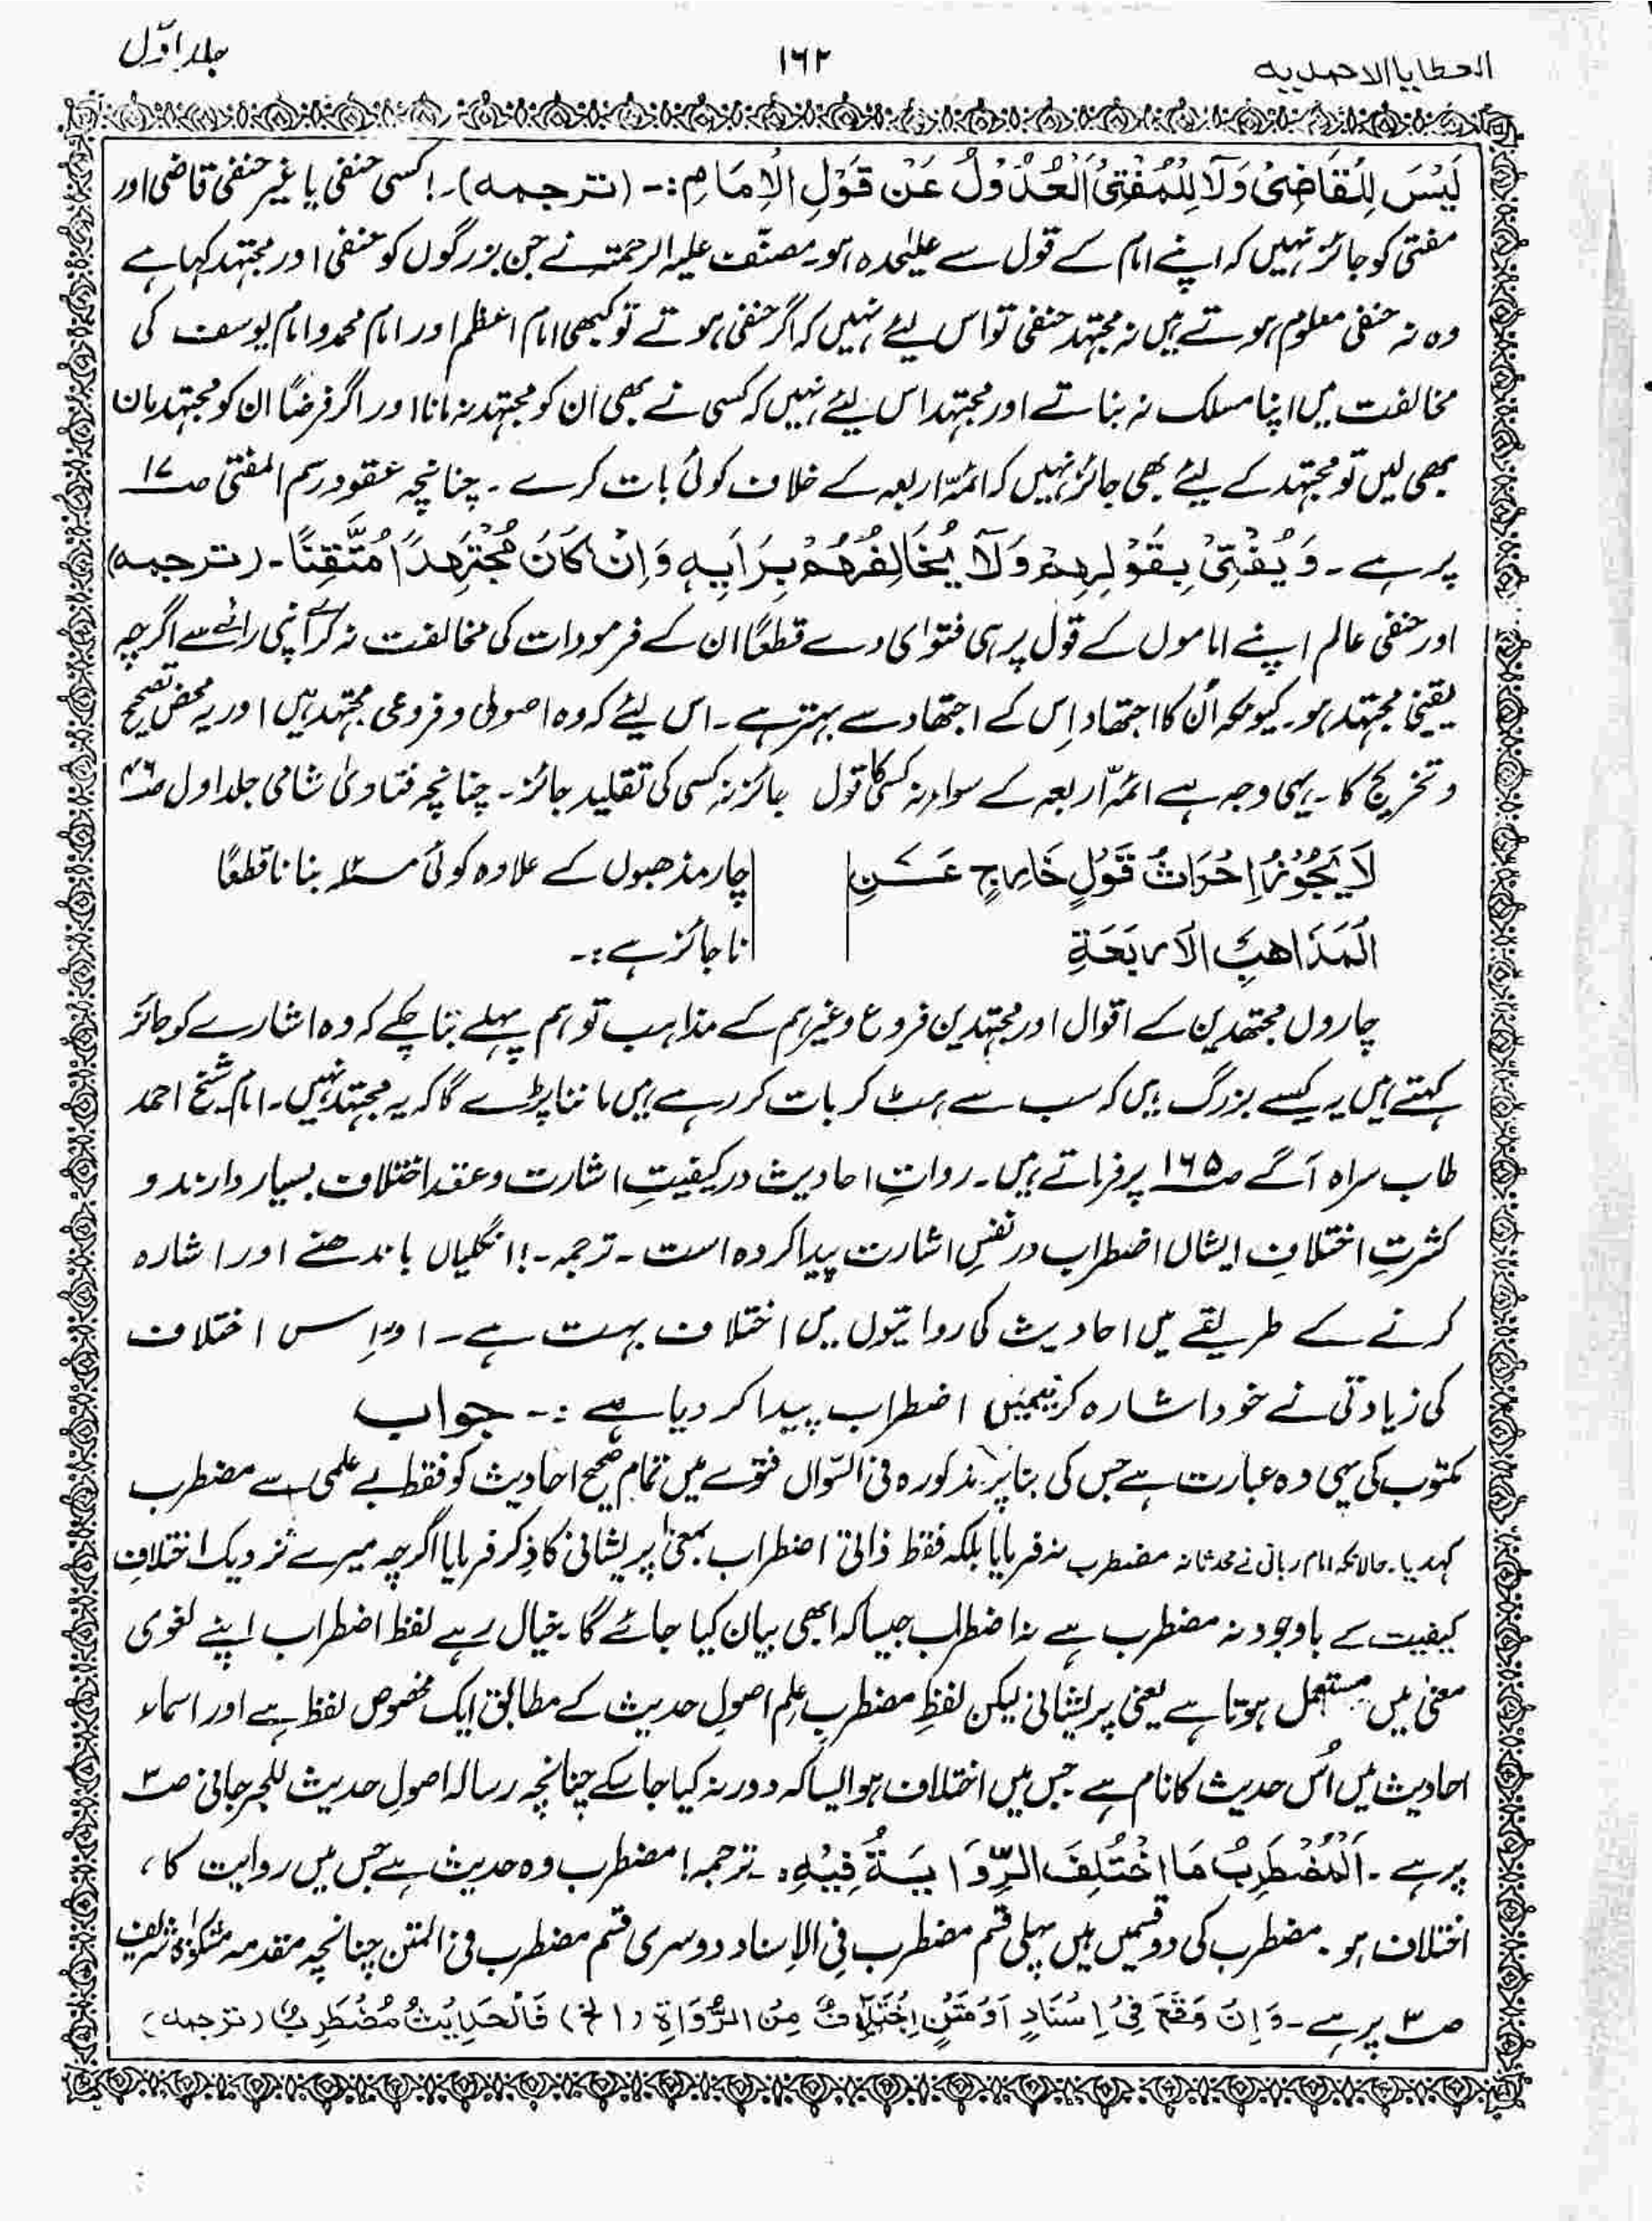 العطایا الاحمدیہ
۱۶۲
جلد اوّل
لَیْسَ لِلْقَاضِیْ وَلَا لِلْمُفْتِیْ الْعُدُوْلُ عَنْ قَوْلِ الْاِمَامِ:- (ترجمہ)۔! کسی حنفی یا غیر حنفی قاضی اور
مفتی کو جائز نہیں کہ اپنے امام کے قول سے علیٰحدہ ہو۔ مصنّف علیہ الرحمتہ نے جن بزرگوں کو حنفی اور مجتہد کہا ہے
وہ نہ حنفی معلوم ہوتے ہیں نہ مجتہد حنفی تو اس لیئے نہیں کہ اگر حنفی ہوتے تو کبھی امام اعظم اور امام محمد و امام یوسف کی
مخالفت میں اپنا مسلک نہ بناتے اور مجتہد اس لیئے نہیں کہ کسی نے بھی ان کو مجتہد نہ مانا اور اگر فرضاً ان کو مجتہد مان
بھی لیں تو مجتہد کے لیئے بھی جائز نہیں کہ ائمّہ اربعہ کے خلاف کوئی بات کرے ۔ چنانچہ عقود رسم المفتی صـ۱۷
پر ہے ۔ وَیُفْتِیْ بِقَوْلِہِمْ وَلَا یُخَالِفُہُمْ بِرَایِہٖ وَاِنْ کَانَ مُجْتَہِدًا مُتَّقِنًا ۔ (ترجمہ)
اور حنفی عالم اپنے اماموں کے قول پر ہی فتوٰی دے قطعًا ان کے فرمودات کی مخالفت نہ کرے اپنی رائے سے اگرچہ
یقینی مجتہد ہو۔ کیونکہ اُن کا اجتھاد اِس کے اجتھاد سے بہتر ہے ۔ اس لیئے کہ وہ اصولی و فروعی مجتہد ہیں اور یہ محض تصحیح
و تخریج کا ۔ یہی وجہ ہے ائمّہ اربعہ کے سواء نہ کسی کا قول جائز نہ کسی کی تقلید جائز ۔ چنانچہ فتاویٰ شامی جلد اول صـ۴۶
لَا یَجُوْزُ اِحْرَاثُ قَوْلٍ خَارِجٍ عَــنِ
الْمَذَاھِبِ الْاَرْبَعَةِ
چار مذھبوں کے علاوہ کوئی مسئلہ بنانا قطعًا
ناجائز ہے:۔
چاروں مجتھدین کے اقوال اور مجتہدین فروع وغیرہم کے مذاہب تو ہم پہلے بتا چکے کہ وہ اشارے کو جائز
کہتے ہیں یہ کیسے بزرگ ہیں کہ سب سے ہٹ کر بات کر رہے ہیں ماننا پڑے گا کہ یہ مجتہد نہیں ۔ امام شیخ احمد
طاب سراہ آگے صـ۱۶۵ پر فرماتے ہیں ۔ رواتِ احادیث در کیفیتِ اشارت و عقد اختلاف بسیار دارند و
کثرتِ اختلافِ ایشاں اضطراب در نفسِ اشارت پیدا کردہ است ۔ ترجمہ ۔! انگلیاں باندھنے اور اشارہ
کرنے کے طریقے میں احادیث کی روایتوں میں اختلاف بہت ہے ۔ اور اِس اختلاف
کی زیادتی نے خود اشارہ کرنیمیں اضطراب پیدا کر دیا ہے :۔ جواب
مکتوب کی یہی وہ عبارت ہے جس کی بنا پر مذکورہ فی السّوال فتوے میں تمام صحیح احادیث کو فقط بے علمی سے مضطرب
کہدیا ۔ حالانکہ امام ربانی نے محدثانہ مضطرب نہ فرمایا بلکہ فقط ذاتی اضطراب بمعنٰی پریشانی کا ذِکر فرمایا اگرچہ میرے نزدیک اختلافِ
کیفیت کے باوجود نہ مضطرب ہے نہ اضطراب جیسا کہ ابھی بیان کیا جائے گا ۔ خیال رہے لفظ اضطراب اپنے لغوی
معنیٰ میں مستعمل ہوتا ہے یعنی پریشانی لیکن لفظِ مضطرب عِلمِ اصولِ حدیث کے مطابق ایک مخصوص لفظ ہے اور اسماء
احادیث میں اُس حدیث کا نام ہے جس میں اختلاف ہو ایسا کہ دور نہ کیا جا سکے چنانچہ رسالہ اصولِ حدیث للجرجانی صـ۳
پر ہے ۔ اَلْمُضْطَرِبُ مَا اخْتُلِفَ الرِّوَایَةُ فِیْہِ ۔ ترجمہ! مضطرب وہ حدیث ہے جس میں روایت کا ،
اختلاف ہو ۔ مضطرب کی دو قسمیں ہیں پہلی قسم مضطرب فِی الاِسناد دوسری قسم مضطرب فی المتن چنانچہ مقدمہ مشکوٰۃ شریف
صـ۳ پر ہے ۔ وَاِنْ وَقَعَ فِیْ اِسْنَادٍ اَوْ مَتْنٍ اِخْتِلَافٌ مِنَ الرُّوَاةِ (الخ) فَالْحَدِیْثُ مُضْطَرِبٌ (ترجمہ)